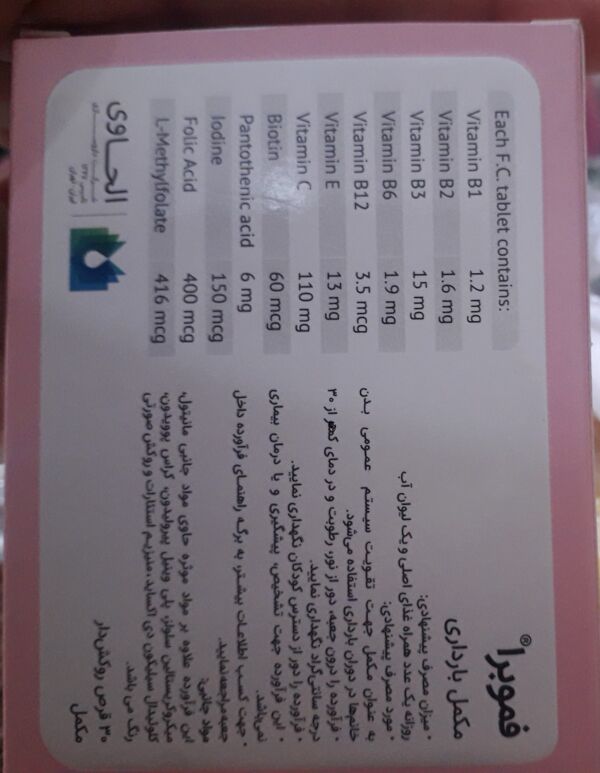 فموبرا®
مکمل بارداری
• میزان مصرف پیشنهادی:
روزانه یک عدد همراه غذای اصلی و یک لیوان آب
• مورد مصرف پیشنهادی:
به عنوان مکمل جهت تقویت سیستم عمومی بدن
خانم‌ها در دوران بارداری استفاده می‌شود.
• فرآورده را درون جعبه، دور از نور، رطوبت و در دمای کمتر از ۳۰
درجه سانتی‌گراد نگهداری نمایید.
• فرآورده را دور از دسترس کودکان نگهداری نمایید.
• این فرآورده جهت تشخیص، پیشگیری و یا درمان بیماری
نمی‌باشد.
• جهت کسب اطلاعات بیشتر، به برگه راهنمای فرآورده داخل
جعبه مراجعه نمایید.
مواد جانبی:
این فرآورده علاوه بر مواد موثره حاوی مواد جانبی مانیتول،
میکروکریستالین سلولز، پلی وینیل پیرولیدون، کراس پوویدون،
کلوئیدال سیلیکون دی اکساید، منیزیم استئارات و روکش صورتی
رنگ می باشد.
۳۰ قرص روکش‌دار
مکمل
Each F.C. tablet contains:
Vitamin B1 1.2 mg
Vitamin B2 1.6 mg
Vitamin B3 15 mg
Vitamin B6 1.9 mg
Vitamin B12 3.5 mcg
Vitamin E 13 mg
Vitamin C 110 mg
Biotin 60 mcg
Pantothenic acid 6 mg
Iodine 150 mcg
Folic Acid 400 mcg
L-Methylfolate 416 mcg
الحاوی